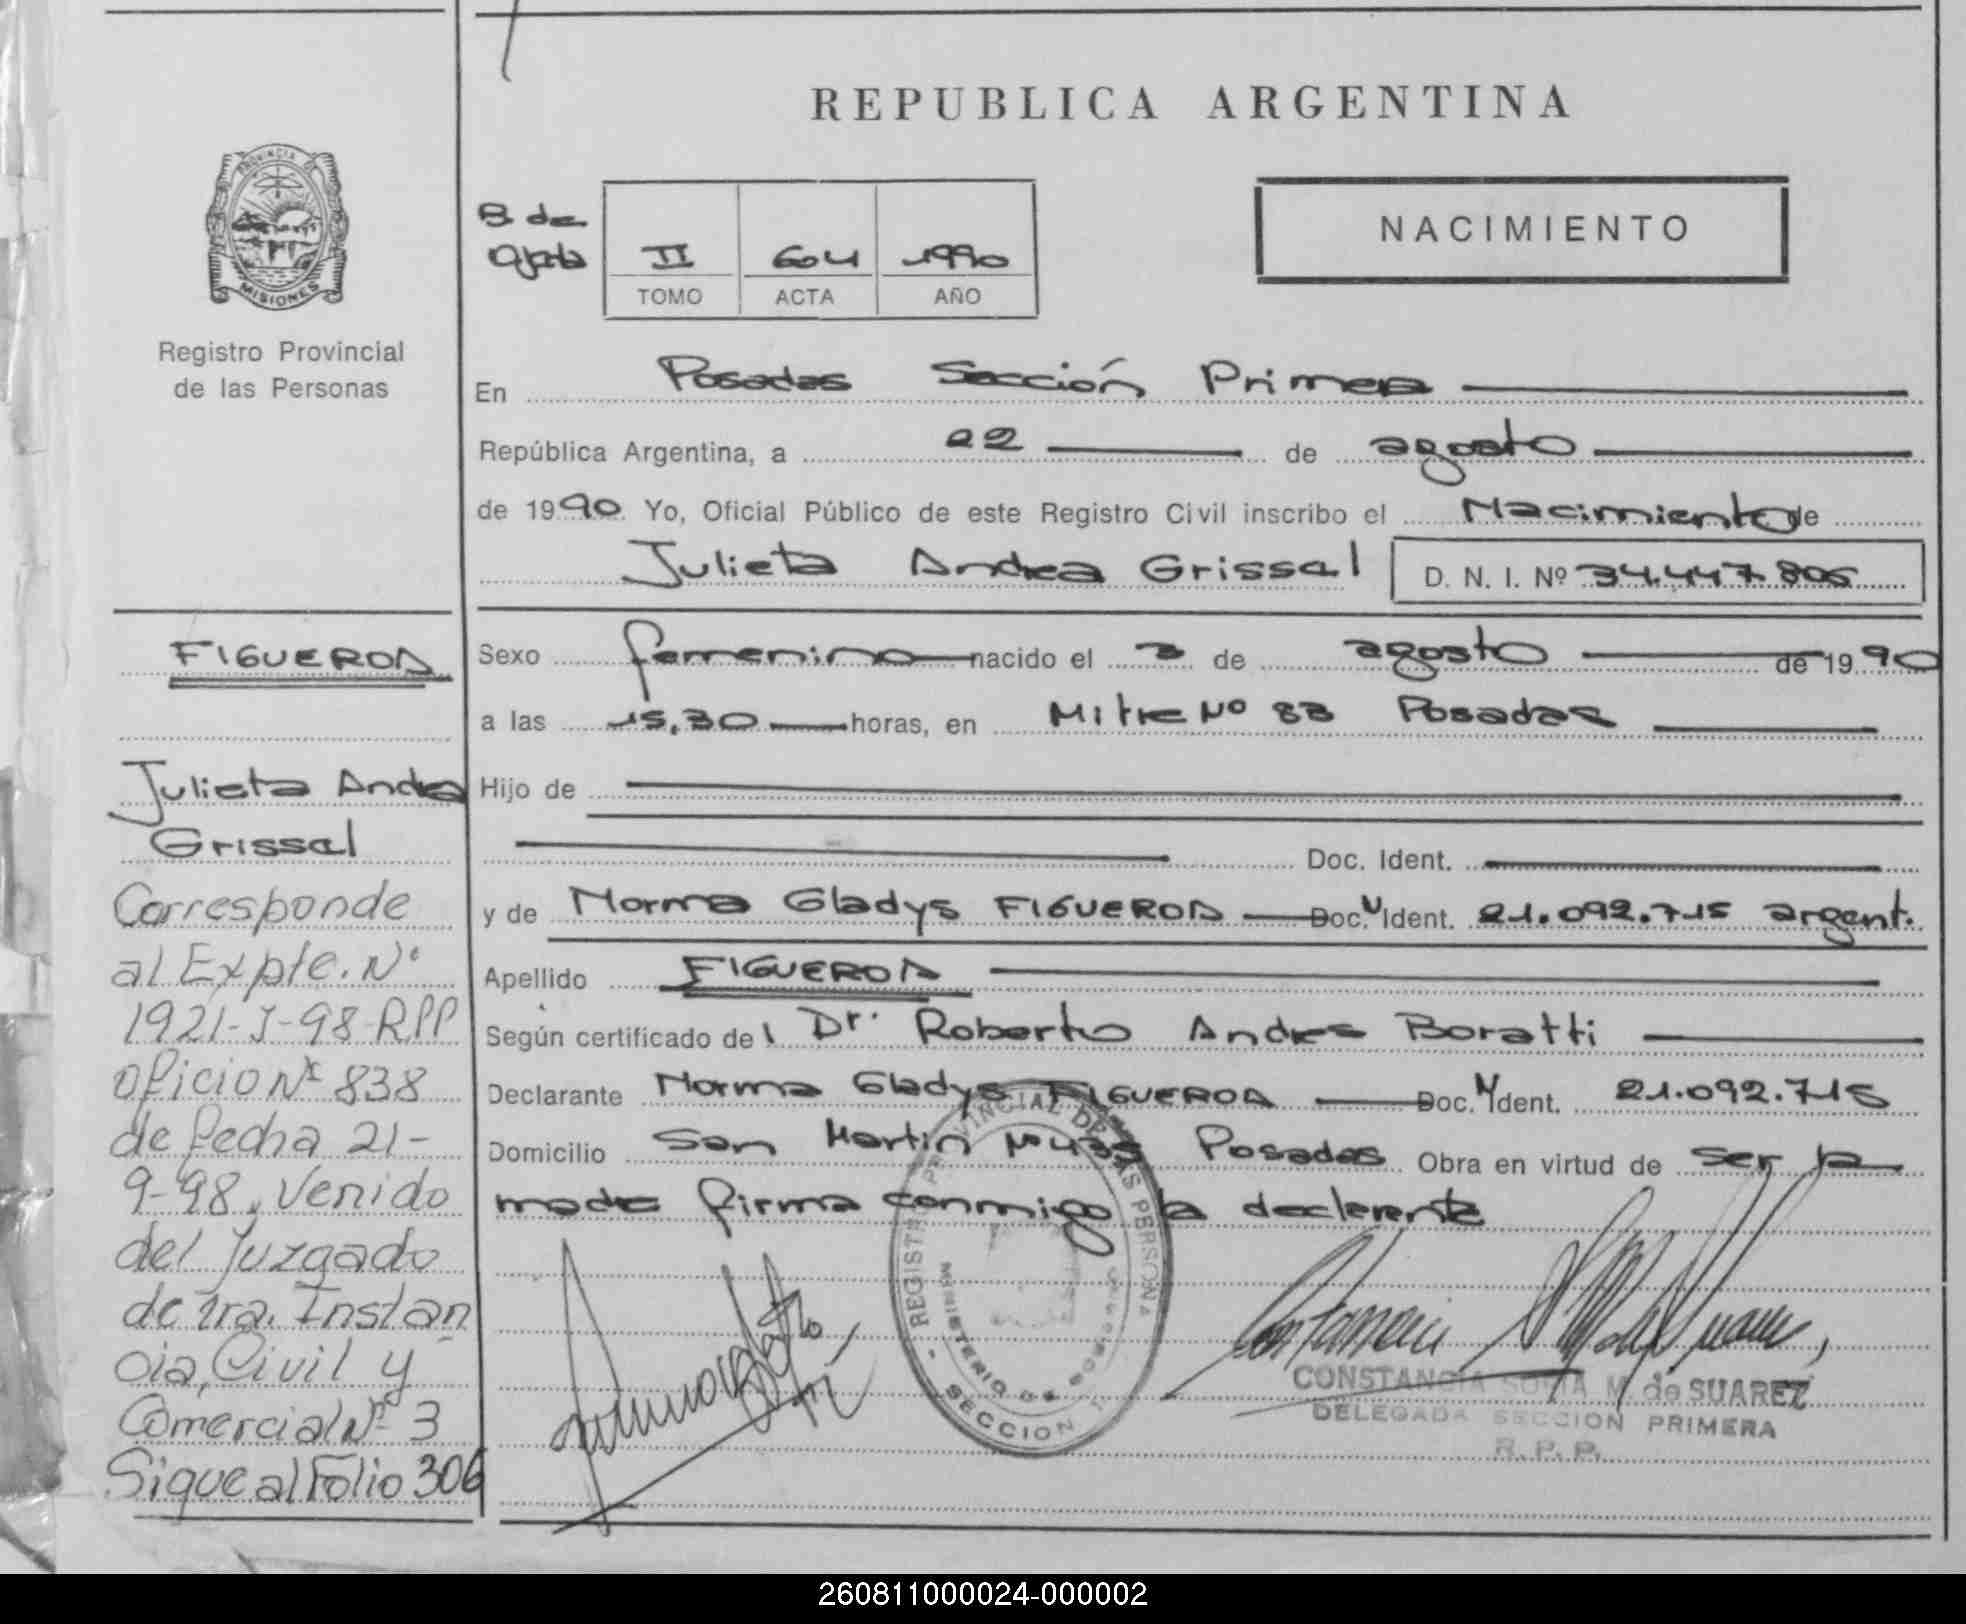 REPUBLICA ARGENTINA
PROVINCIA DE
MISIONES
Registro Provincial
de las Personas
B de
II 604 1990
TOMO ACTA AÑO
NACIMIENTO
En Posadas Sección Primera
República Argentina, a 22 de agosto
de 1990 Yo, Oficial Público de este Registro Civil inscribo el Nacimiento de
Julieta Andrea Grissel D. N. I. Nº 34.447.805
Sexo femenino nacido el 3 de agosto de 1990
a las 15,30 horas, en Mitre Nº 83 Posadas
Hijo de
Doc. Ident.
y de Norma Gladys FIGUEROA Doc. Ident. 21.092.715 argent.
Apellido FIGUEROA
Según certificado del Dr. Roberto Andres Boratti
Declarante Norma Gladys FIGUEROA Doc. Ident. 21.092.715
Domicilio San Martin Nº 435 Posadas Obra en virtud de ser la
madre firma conmigo la declarante
FIGUEROA
Julieta Andrea
Grissel
Corresponde
al Expte. Nº
1921-J-98-RPP
oficio Nº 838
de fecha 21-
9-98, Venido
del Juzgado
de 1ra. Instan
cia, Civil y
Comercial Nº 3
Sigue al Folio 306
REGISTRO PROVINCIAL DE LAS PERSONAS
MINISTERIO DE GOBIERNO
SECCION 1
CONSTANCIA SOFIA M. de SUAREZ
DELEGADA SECCION PRIMERA
R. P. P.
260811000024-000002